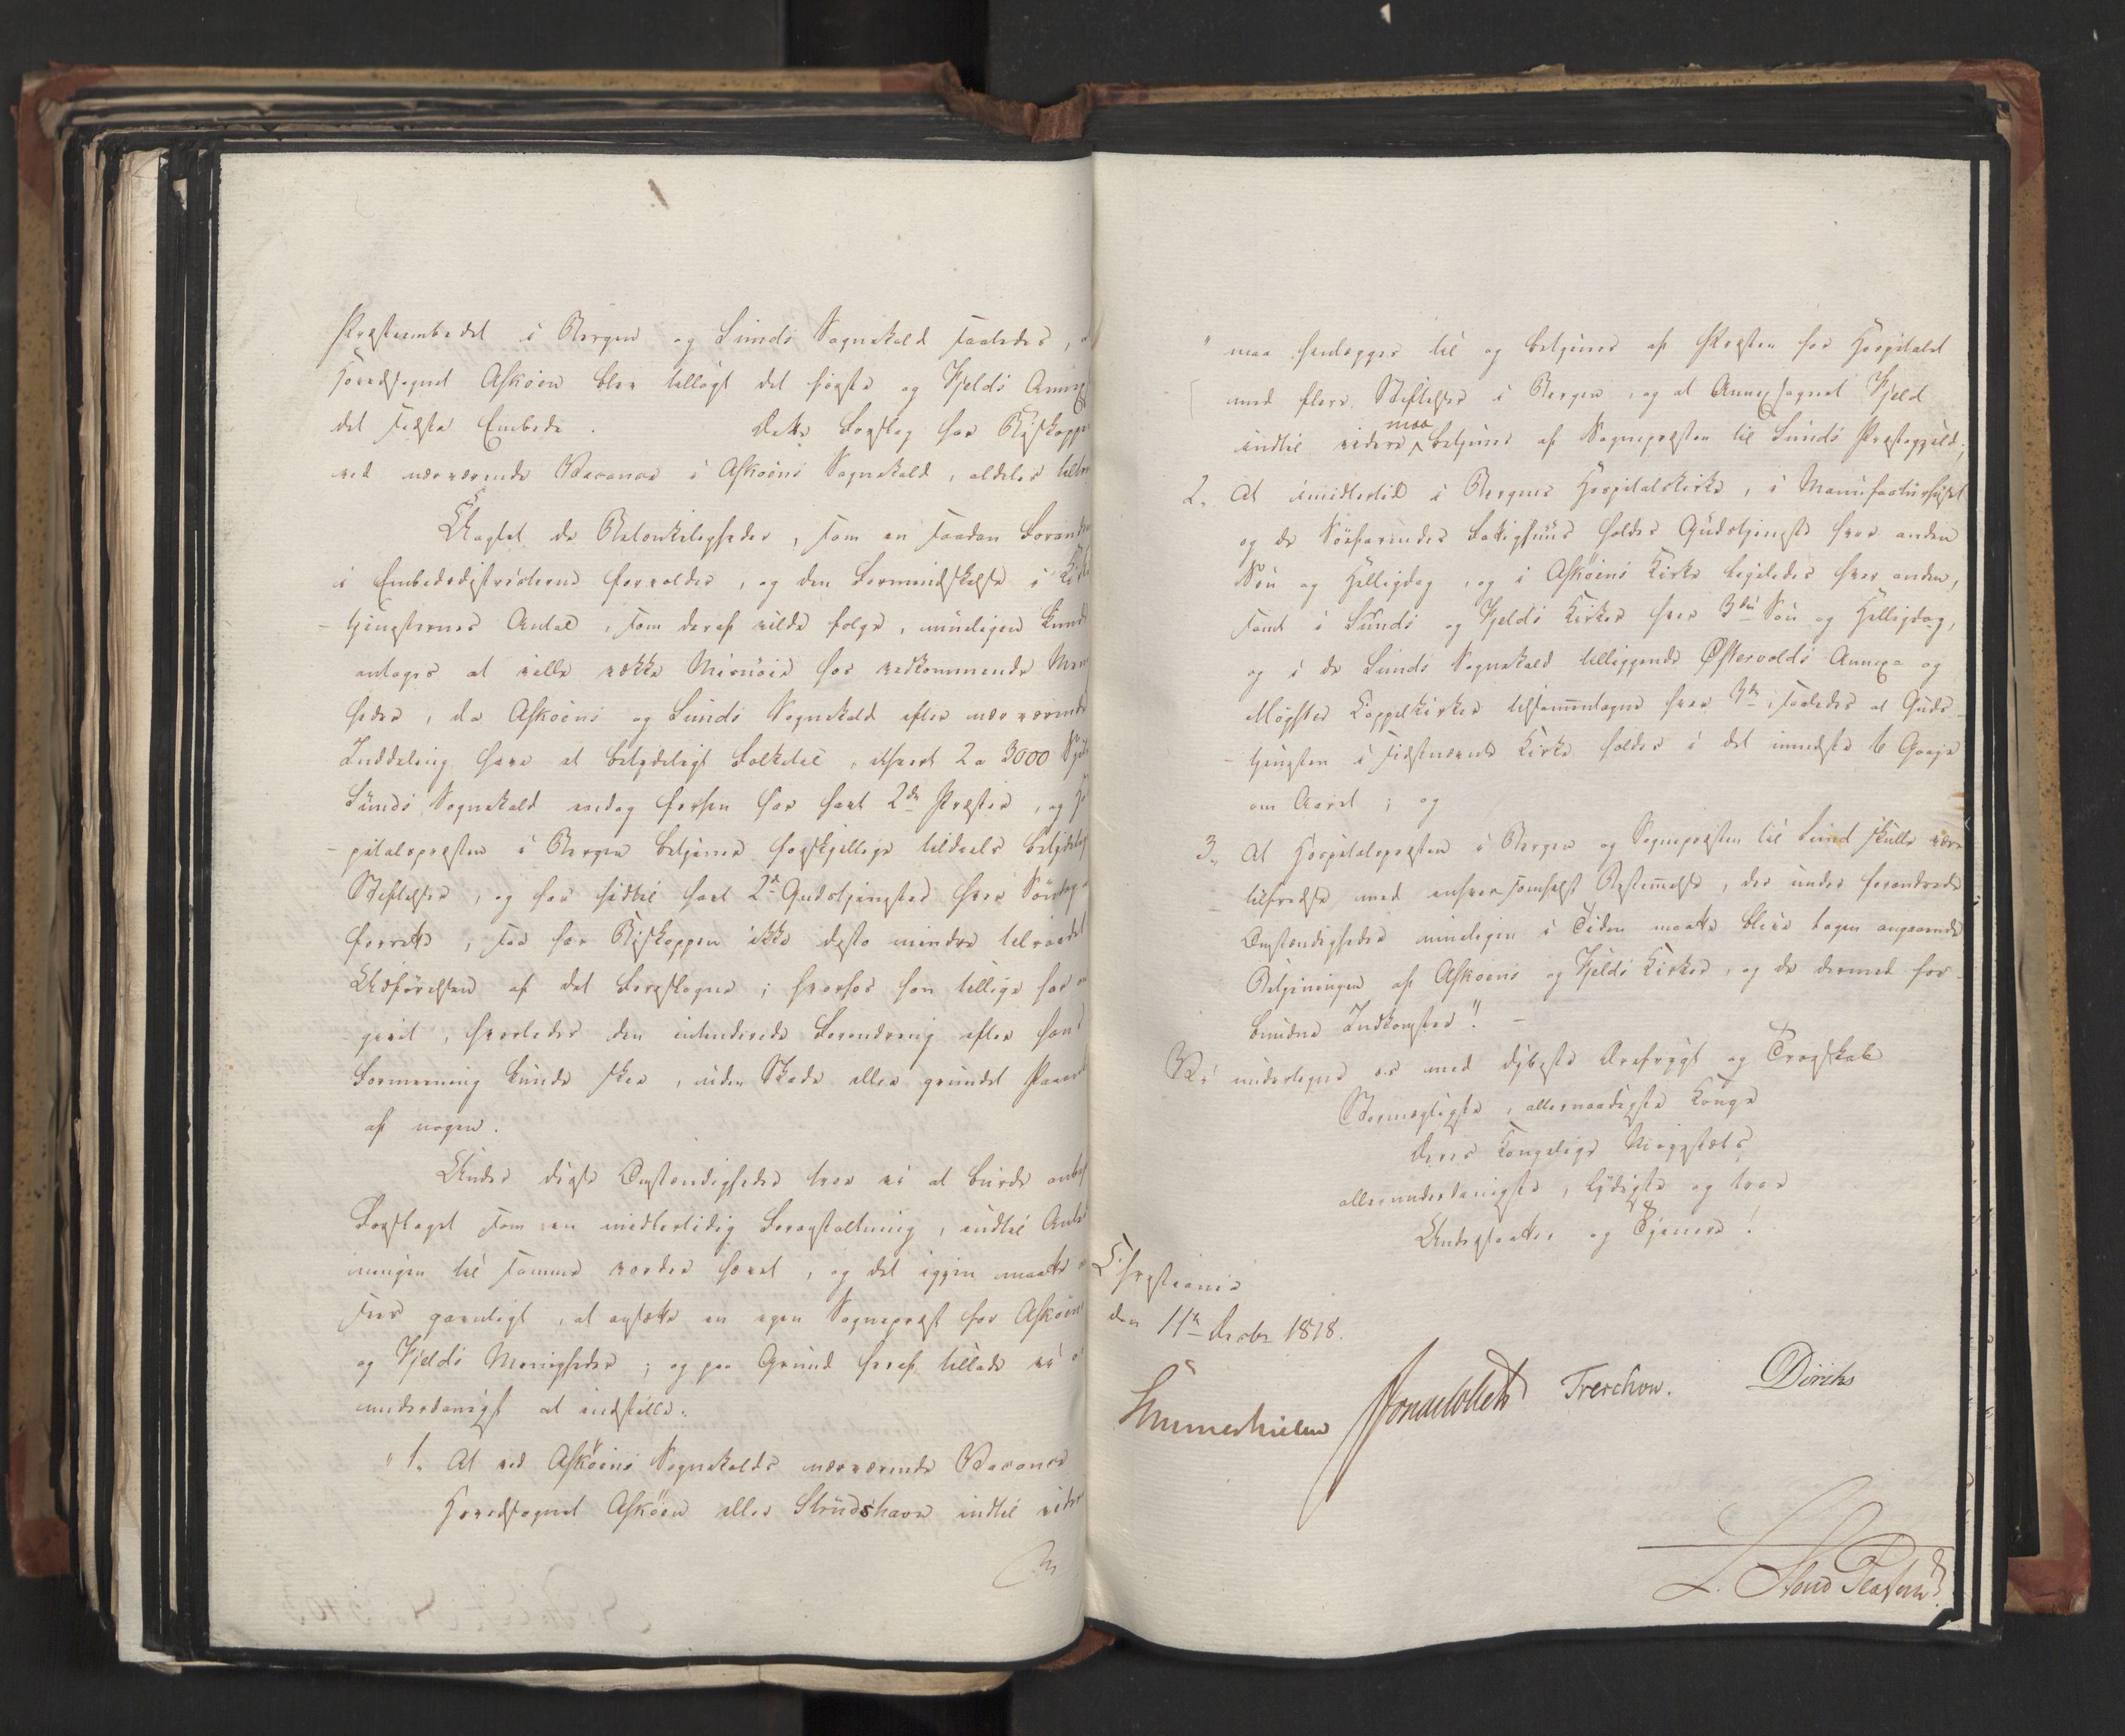 Præsteembedet i Bergen og Sunds Sognekald saaledes,
Hovedsognet Askøen blev tillagt det første og Fjelds Annex
det sidste Embede. Dette Forslag har Biskoppen
ved nærværende Vacance i Askøens Sognekald, aldeles
Uagtet de Betænkeligheder, som en saadan Forandr
i Embedsdistricterne forvolder, og den Formindskelse i Kirke
-tjenesternes Antal, som deraf vilde følge, rimeligen kunde
antages at ville vække Misnøie hos vedkommende Menig
heder, da Askøens og Sunds Sognekald efter nærværende
Inddeling have et betydeligt Folketal, ethvert 2 a 3000 Sjæle
Sunds Sognekald endog forhen har havt 2de Præster, og Hos
-pitalspræsten i Bergen betjener forskjellige tildeels betydelige
Stiftelser, og har hidtil havt 2de Gudstjenester hver Søndag at
forrette, saa har Biskoppen ikke desto mindre tilraadet
Udførelsen af det Foreslagne; hvorhos han tillige har
givet, hvorledes den intenderede Forandring efter hans
Formening kunde skee, uden Skade eller grundet Paaanke
af nogen.
Under disse Omstændigheder troe vi at burde anbef
Forslaget som en midlertidig Foranstaltning, indtil Anled
ningen til samme vorder hævet, og det igjen maatte
sees gavnligt, at ansætte en egen Sognepræst for Askøens
og Fjelds Menigheder; og paa Grund heraf tillade vi os
underdanigst at indstille:
"1. At ved Askøens Sognekalds nærværende Vacance
Hovedsognet Askøen eller Strudshavn indtil videre
" maa henlægges til og betjenes af Præsten for Hospitalet
med flere Stiftelser i Bergen, og at Annexsognet Fjeld
maa
indtil videre betjenes af Sognepræsten til Sunds Præstegjeld;
2. At imidlertid i Bergens Hospitalskirke, i Manufacturhuset
og de Søefarendes Fattighuus holdes Gudstjeneste hver anden
Søn og Helligdag, og i Askøens Kirke ligeledes hver anden,
samt i Sunds og Fjelds Kirker hver 3die Søn og Helligdag,
og i de Sunds Sognekald tilliggende Østervolds Annex- og
Møgster Cappelkirker tilsammentagne hver 3die, saaledes at Guds-
-tjenesten i sidstnævnte Kirke holdes i det mindste 6 Gange
om Aaret; og
3. At Hospitalspræsten i Bergen og Sognepræsten til Sund skulle være
tilfredse med enhversomhelst Bestemmelse, der under forandrede
Omstændigheder rimeligen i Tiden maatte blive tagen angaaende
Betjeningen af Askøens og Fjelds Kirker, og de dermed for-
bundne Indkomster". -
Vi undertegne os med dybeste Ærefrygt og Troeskab
Stormægtigste, allernaadigste Konge
Deres Kongelige Majestæts
allerunderdanigste, lydigste og troe
Undersaatter og Tjenere!
Christiania
den 11te Decbr 1818.
Sommerhielm Jonas Collett Treschow. Diriks
L. Stoud Platou